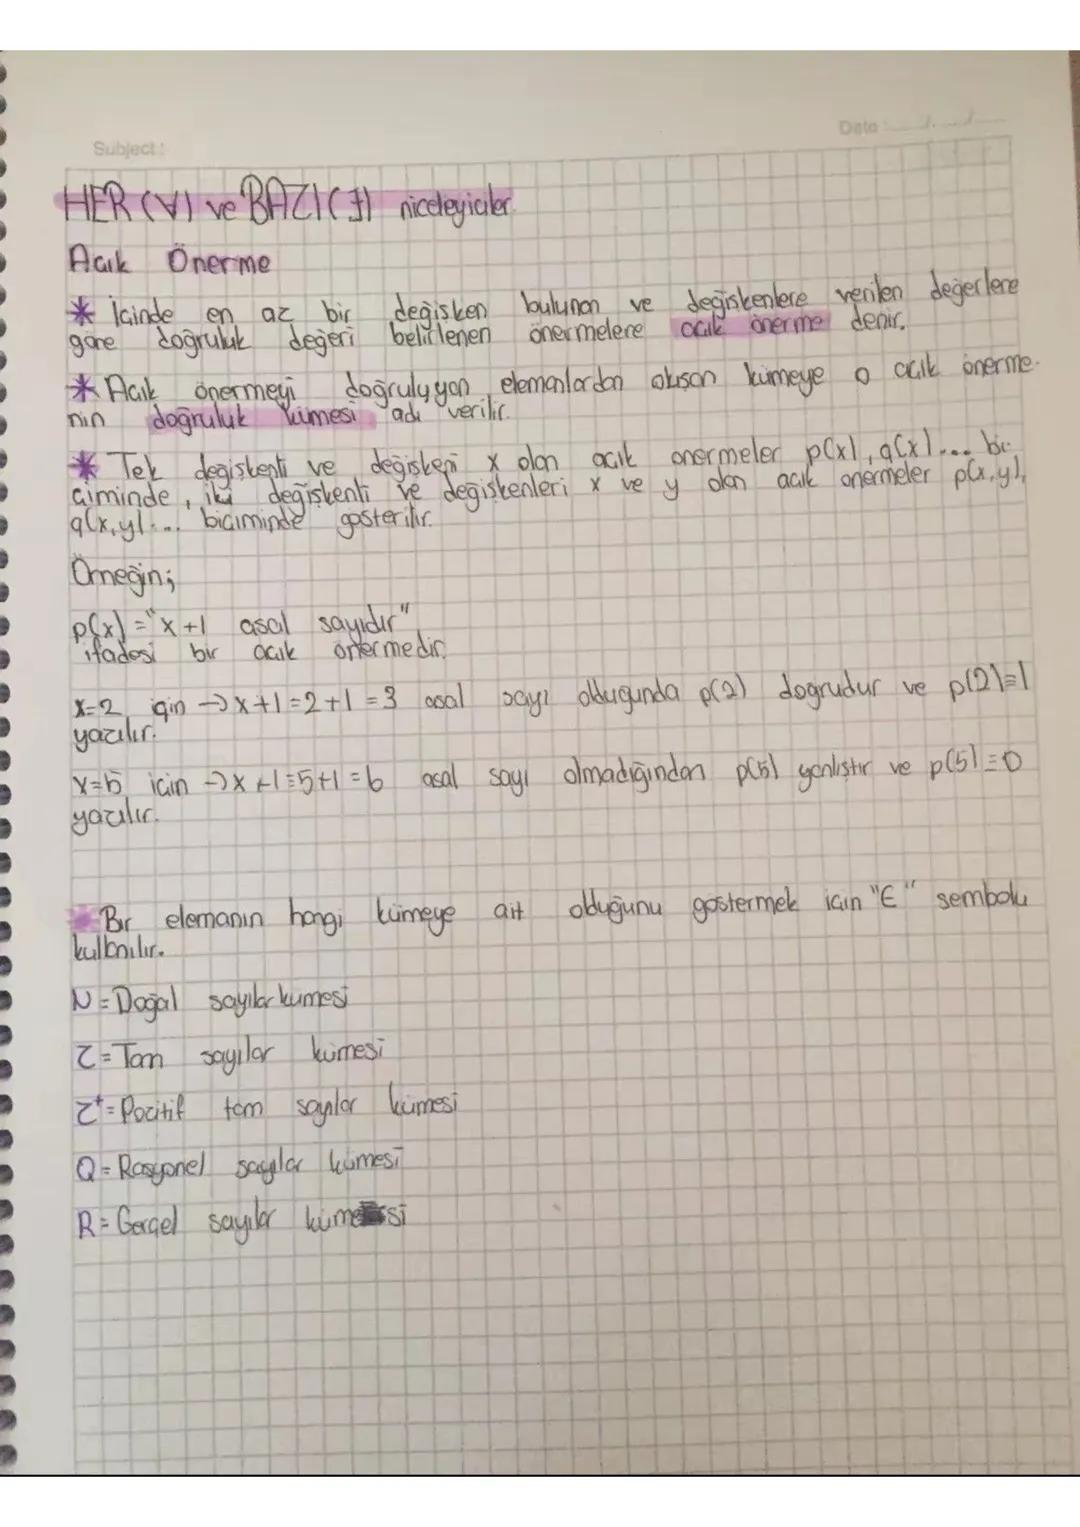 Subject:
Date: ..../..../....
HER (∀) ve BAZI (∃) niceleyiciler
Açık Önerme
* İçinde en az bir değişken bulunan ve değişkenlere verilen değerlere
göre doğruluk değeri belirlenen önermelere açık önerme denir.
* Açık önermeyi doğrulyyan elemanlardan oluşan kümeye o açık önerme-
nin doğruluk kümesi adı verilir.
* Tek değişkenli ve değişkeni x olan açık önermeler p(x), q(x)... bi-
çiminde, iki değişkenli ve değişkenleri x ve y olan açık önermeler p(x,y),
q(x,y)... biçiminde gösterilir.
Örneğin;
p(x) = "x+1 asal sayıdır"
ifadesi bir açık önermedir.
x=2 için → x+1=2+1=3 asal sayı olduğunda p(2) doğrudur ve p(2)≡1
yazılır.
x=5 için → x+1=5+1=6 asal sayı olmadığından p(5) yanlıştır ve p(5)≡0
yazılır.
* Bir elemanın hangi kümeye ait olduğunu göstermek için "∈" sembolu
kullanılır.
N = Doğal sayılar kümesi
Z = Tam sayılar kümesi
Z⁺ = Pozitif tam sayılar kümesi
Q = Rasyonel sayılar kümesi
R = Gerçel sayılar kümesi